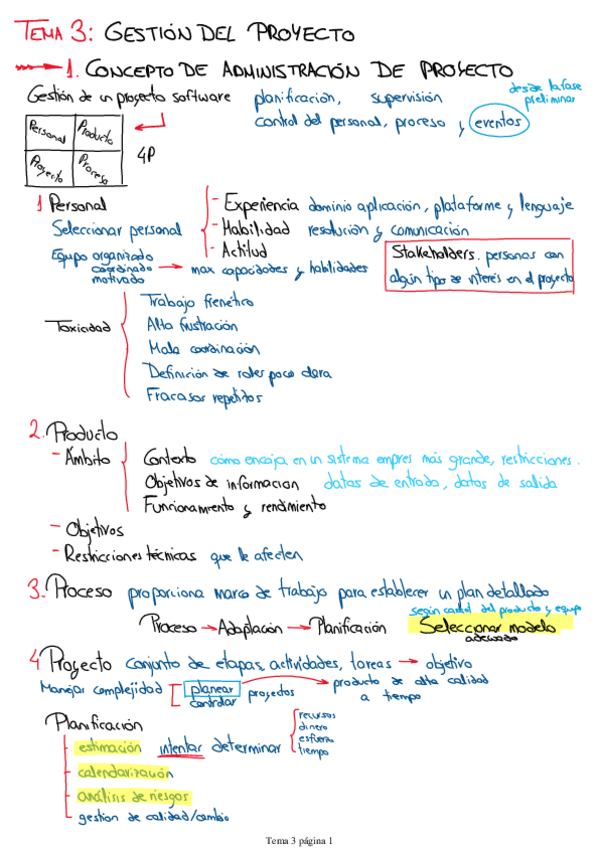 TEMA 3: GESTIÓN DEL PROYECTO
1. CONCEPTO DE ADMINISTRACIÓN DE PROYECTO
Gestión de un proyecto software planificación, supervisión desde la fase preliminar
control del personal, proceso y eventos
Personal Producto
Proyecto Proceso
4P
1 Personal
- Experiencia dominio aplicación, plataforma y lenguaje
Seleccionar personal - Habilidad resolución y comunicación
- Actitud
Equipo organizado
coordinado → max capacidades y habilidades
motivado
Stakeholders. personas con
algún tipo de interés en el proyecto
Toxicidad
Trabajo frenético
Alta frustración
Mala coordinación
Definición de roles poco clara
Fracasos repetidos
2. Producto
- Ámbito
Contexto cómo encaja en un sistema empres más grande, restricciones.
Objetivos de informacion datos de entrada, datos de salida
Funcionamiento y rendimiento
- Objetivos
- Restricciones técnicas que le afecten
3. Proceso proporciona marco de trabajo para establecer un plan detallado
según caract del producto y equipo
Proceso → Adaptación → Planificación Seleccionar modelo
adecuado
4 Proyecto conjunto de etapas, actividades, tareas → objetivo
Manejar complejidad planear proyectos producto de alta calidad
controlar a tiempo
Planificación
- estimación intentar determinar
recursos
dinero
esfuerzo
tiempo
- calendarización
- análisis de riesgos
- gestion de calidad/cambio
Tema 3 página 1